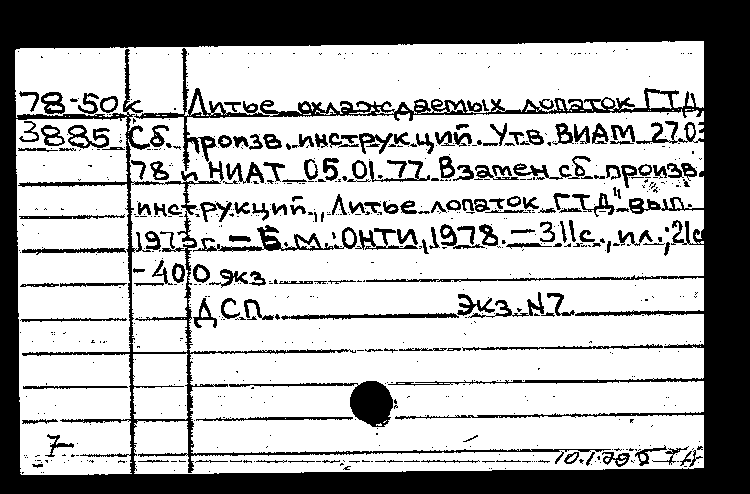 78-50к Литье охлаждаемых лопаток ГТД
3885 Сб. произв. инструкций. Утв. ВИАМ 27.03
78 и НИАТ 05.01.77. Взамен сб. произв.
инструкций „Литье лопаток ГТД" вып.
1973 г. – Б.м.: ОНТИ, 1978. – 311с., ил.; 21с
- 400 экз
ДСП Экз. N7
7-